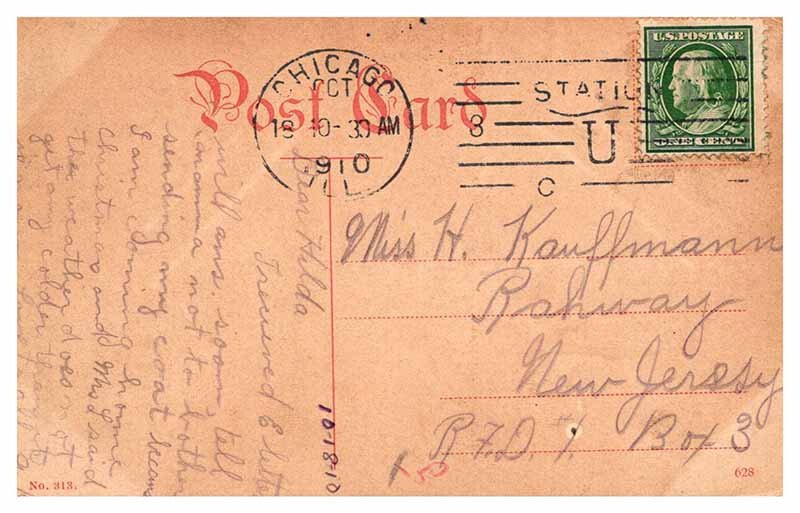 Post Card
CHICAGO
OCT
18 10-30 AM
1910
ILL.
STATION
8
U
C
U.S. POSTAGE
ONE CENT
Miss H. Kauffmann
Rahway
New Jersey
R.F.D. 1. Box 3
Dear Hilda
I recieved E lette
will ans. soon, tell
mamma not to bother
sending my coat
I am coming home
Christmas and Mrs L said
the weather does not
get any colder than it
10-18-10
50
No. 313.
628